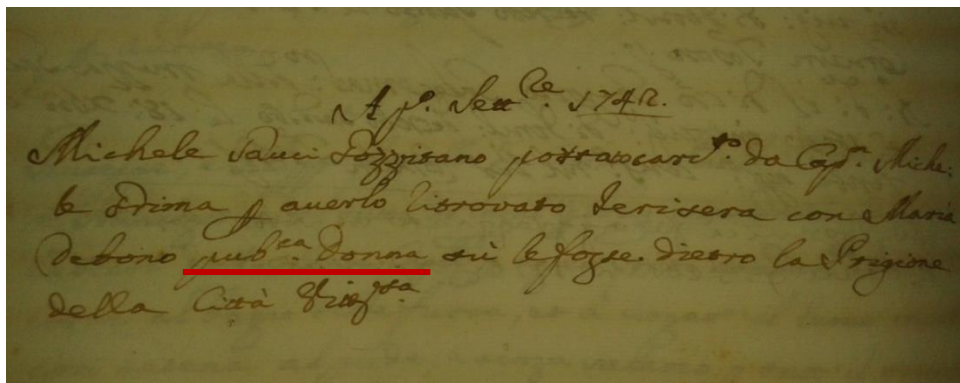 A p.º Sett.re 1742.
Michele Sauci Pozzitano posto a carc.to da Cap.n Miche:
le Grima p averlo ritrovato Ierisera con Maria
Debono pub.ca Donna sù le fosse dietro la Prigione
della Città Vitt.sa